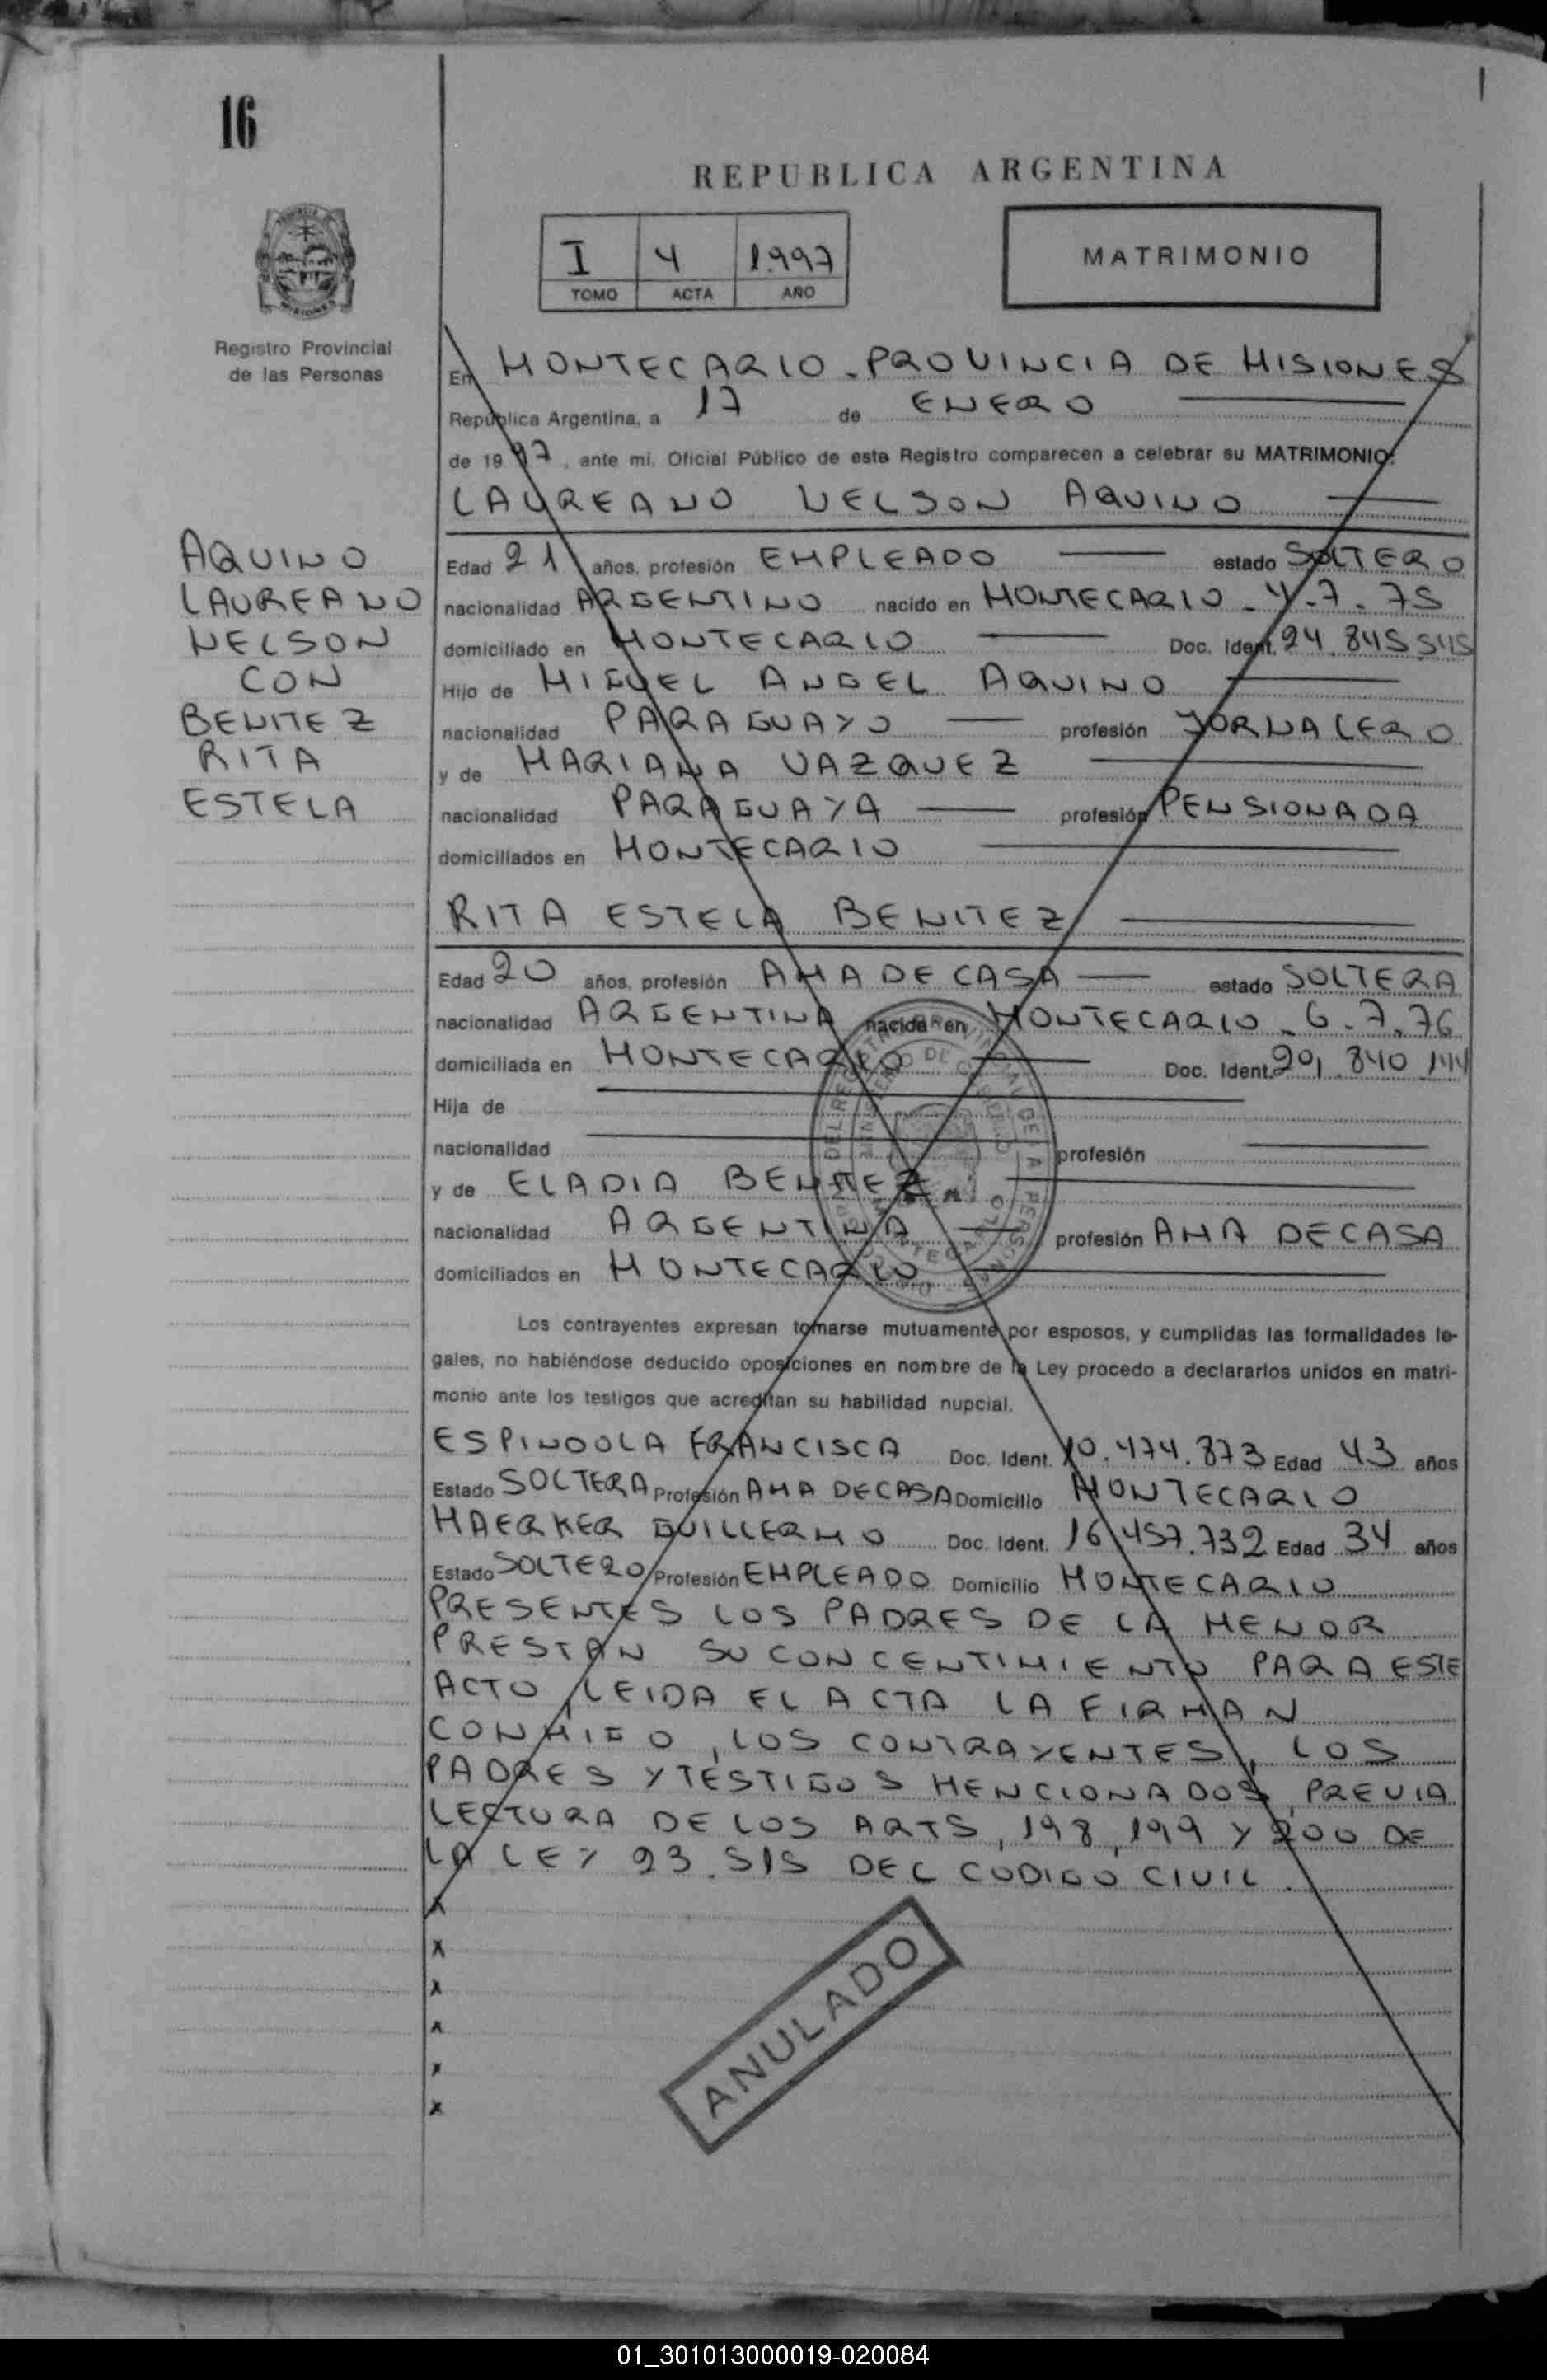 16
REPUBLICA ARGENTINA
I 4 1.997
TOMO ACTA AÑO
MATRIMONIO
Registro Provincial
de las Personas
En MONTECARLO - PROVINCIA DE MISIONES
República Argentina, a 17 de ENERO
de 1997, ante mí, Oficial Público de este Registro comparecen a celebrar su MATRIMONIO:
LAUREANO NELSON AQUINO
AQUINO
LAUREANO
NELSON
CON
BENITEZ
RITA
ESTELA
Edad 21 años, profesión EMPLEADO estado SOLTERO
nacionalidad ARGENTINO nacido en MONTECARLO - 4.7.75
domiciliado en MONTECARLO Doc. Ident. 24.845.545
Hijo de MIGUEL ANGEL AQUINO
nacionalidad PARAGUAYO profesión JORNALERO
y de MARIANA VAZQUEZ
nacionalidad PARAGUAYA profesión PENSIONADA
domiciliados en MONTECARLO
RITA ESTELA BENITEZ
Edad 20 años, profesión AMA DE CASA estado SOLTERA
nacionalidad ARGENTINA nacida en MONTECARLO - 6.7.76
domiciliada en MONTECARLO Doc. Ident.
Hija de
nacionalidad profesión
y de ELADIA BENITEZ
nacionalidad ARGENTINA profesión AMA DE CASA
domiciliados en MONTECARLO
Los contrayentes expresan tomarse mutuamente por esposos, y cumplidas las formalidades le-
gales, no habiéndose deducido oposiciones en nombre de la Ley procedo a declararlos unidos en matri-
monio ante los testigos que acreditan su habilidad nupcial.
ESPINDOLA FRANCISCA Doc. Ident. 10.474.873 Edad 43 años
Estado SOLTERA Profesión AMA DE CASA Domicilio MONTECARLO
HAERKER GUILLERMO Doc. Ident. 16.457.732 Edad 34 años
Estado SOLTERO Profesión EMPLEADO Domicilio MONTECARLO
PRESENTES LOS PADRES DE LA MENOR
PRESTAN SU CONCENTIMIENTO PARA ESTE
ACTO, LEIDA EL ACTA LA FIRMAN
CONMIGO, LOS CONTRAYENTES, LOS
PADRES Y TESTIGOS MENCIONADOS, PREVIA
LECTURA DE LOS ARTS, 198, 199 Y 200 DE
LA LEY 23.515 DEL CODIGO CIVIL.
x
x
x
x
x
x
ANULADO
01_301013000019-020084